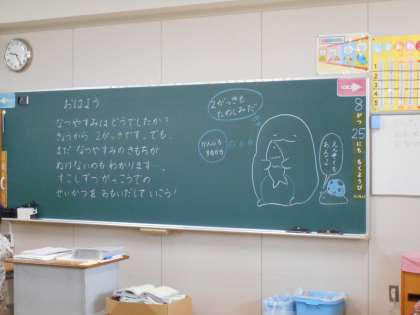 おはよう
なつやすみは どうでしたか？
きょうから 2がっきです。でも、
まだ なつやすみの きもちが
ぬけないのも わかります…。
すこしずつ がっこうでの
せいかつを おもいだしていこう！
2がっきも
たのしみだ
8
がつ
25
にち
もくようび